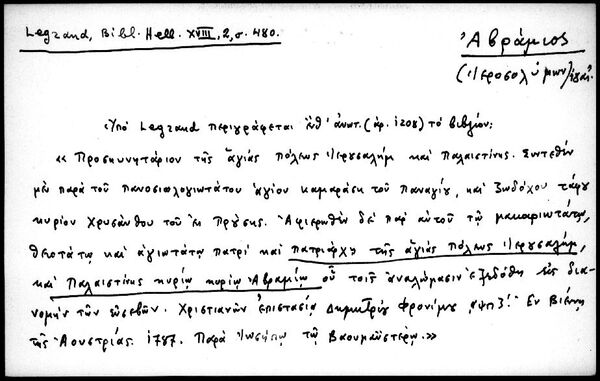 Legrand, Bibl. Hell. XVIII, 2, σ. 480.
Ἀβράμιος
(Ἱεροσολύμων)
Ὑπὸ Legrand περιγράφεται ἔνθ' ἀνωτ. (ἀρ. 1208) τὸ βιβλίον:
«Προσκυνητάριον τῆς ἁγίας πόλεως Ἱερουσαλὴμ καὶ Παλαιστίνης. Συντεθὲν
μὲν παρὰ τοῦ πανοσιωλογιωτάτου ἁγίου καμαράση τοῦ Παναγίου, καὶ ζωδόχου τάφου
κυρίου Χρυσάνθου τοῦ ἐκ Προύσης. Ἀφιερωθὲν δὲ παρ' αὐτοῦ τῷ μακαριωτάτῳ,
θειοτάτῳ καὶ ἁγιωτάτῳ πατρὶ καὶ πατριάρχῃ τῆς ἁγίας πόλεως Ἱερουσαλὴμ,
καὶ Παλαιστίνης κυρίῳ κυρίῳ Ἀβραμίῳ οὗ τοῖς ἀναλώμασιν ἐξεδόθη εἰς δια-
νομὴν τῶν εὐσεβῶν. Χριστιανῶν ἐπιστασίᾳ Δημητρίου Φρονίμου ͵αψπζ! Ἐν Βιέννῃ
τῆς Ἀουστρίας. 1787. Παρὰ Ἰωσήπῳ τῷ Βαουμαϊστέρῳ.»